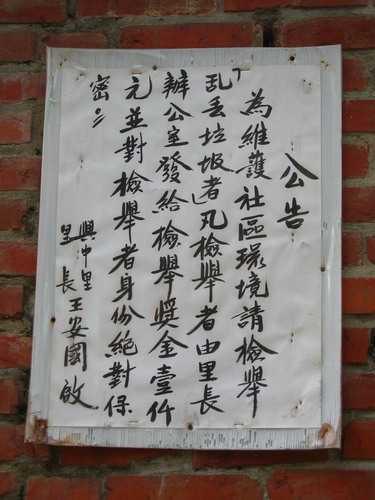 公告
為維護社區環境請檢舉
乱丟垃圾者凡檢舉者由里長
辦公室發給檢舉獎金壹仟
元並對檢舉者身份絕對保
密
興中里
里長王安國啟